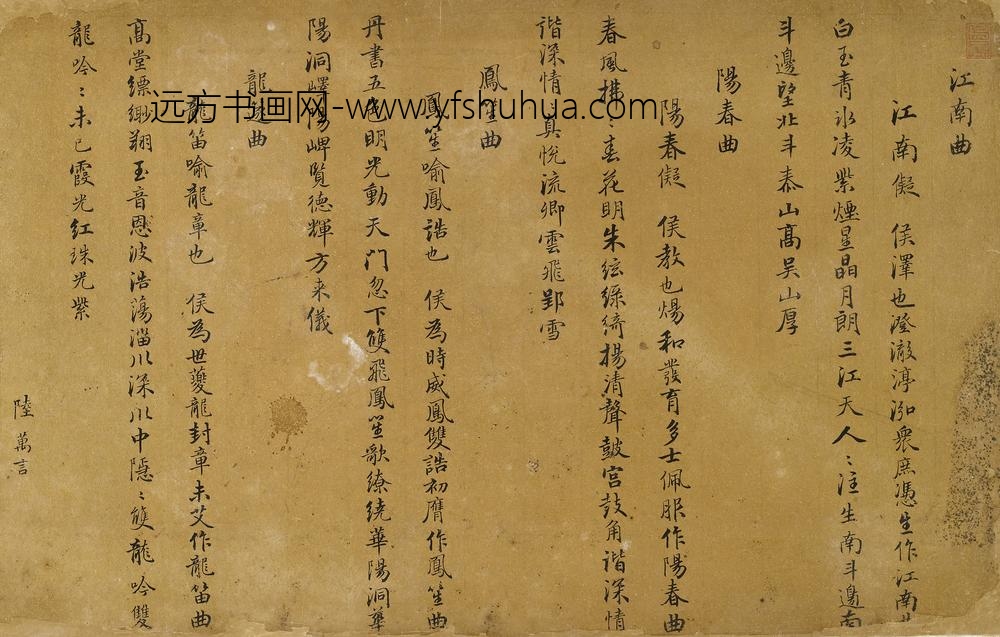 江南曲
江南儗 侯澤也澄澈渟泓衆庶憑生作江南曲
白玉青冰凌紫煙星晶月朗三江天人〻注生南斗邊南
斗邊望北斗泰山高吴山厚
陽春曲
陽春儗 侯教也煬和發育多士佩服作陽春曲
春風拂〻春花明朱絃綠綺揚清聲鼓宫鼓角諧深情
諧深情真悅流卿雲飛郢雪
鳳笙曲
鳳笙喻鳳誥也 侯為時威鳳雙誥初膺作鳳笙曲
丹書五色明光動天門忽下雙飛鳳笙歌繚繞華陽洞華
陽洞嶧陽岬覧德輝方来儀
龍笛曲
龍笛喻龍章也 侯為世夔龍封章未艾作龍笛曲
髙堂縹緲翔玉音恩波浩蕩淄川深川中隱〻雙龍吟雙
龍吟〻未已霞光紅珠光紫
陸萬言
远方书画网-www.yfshuhua.com